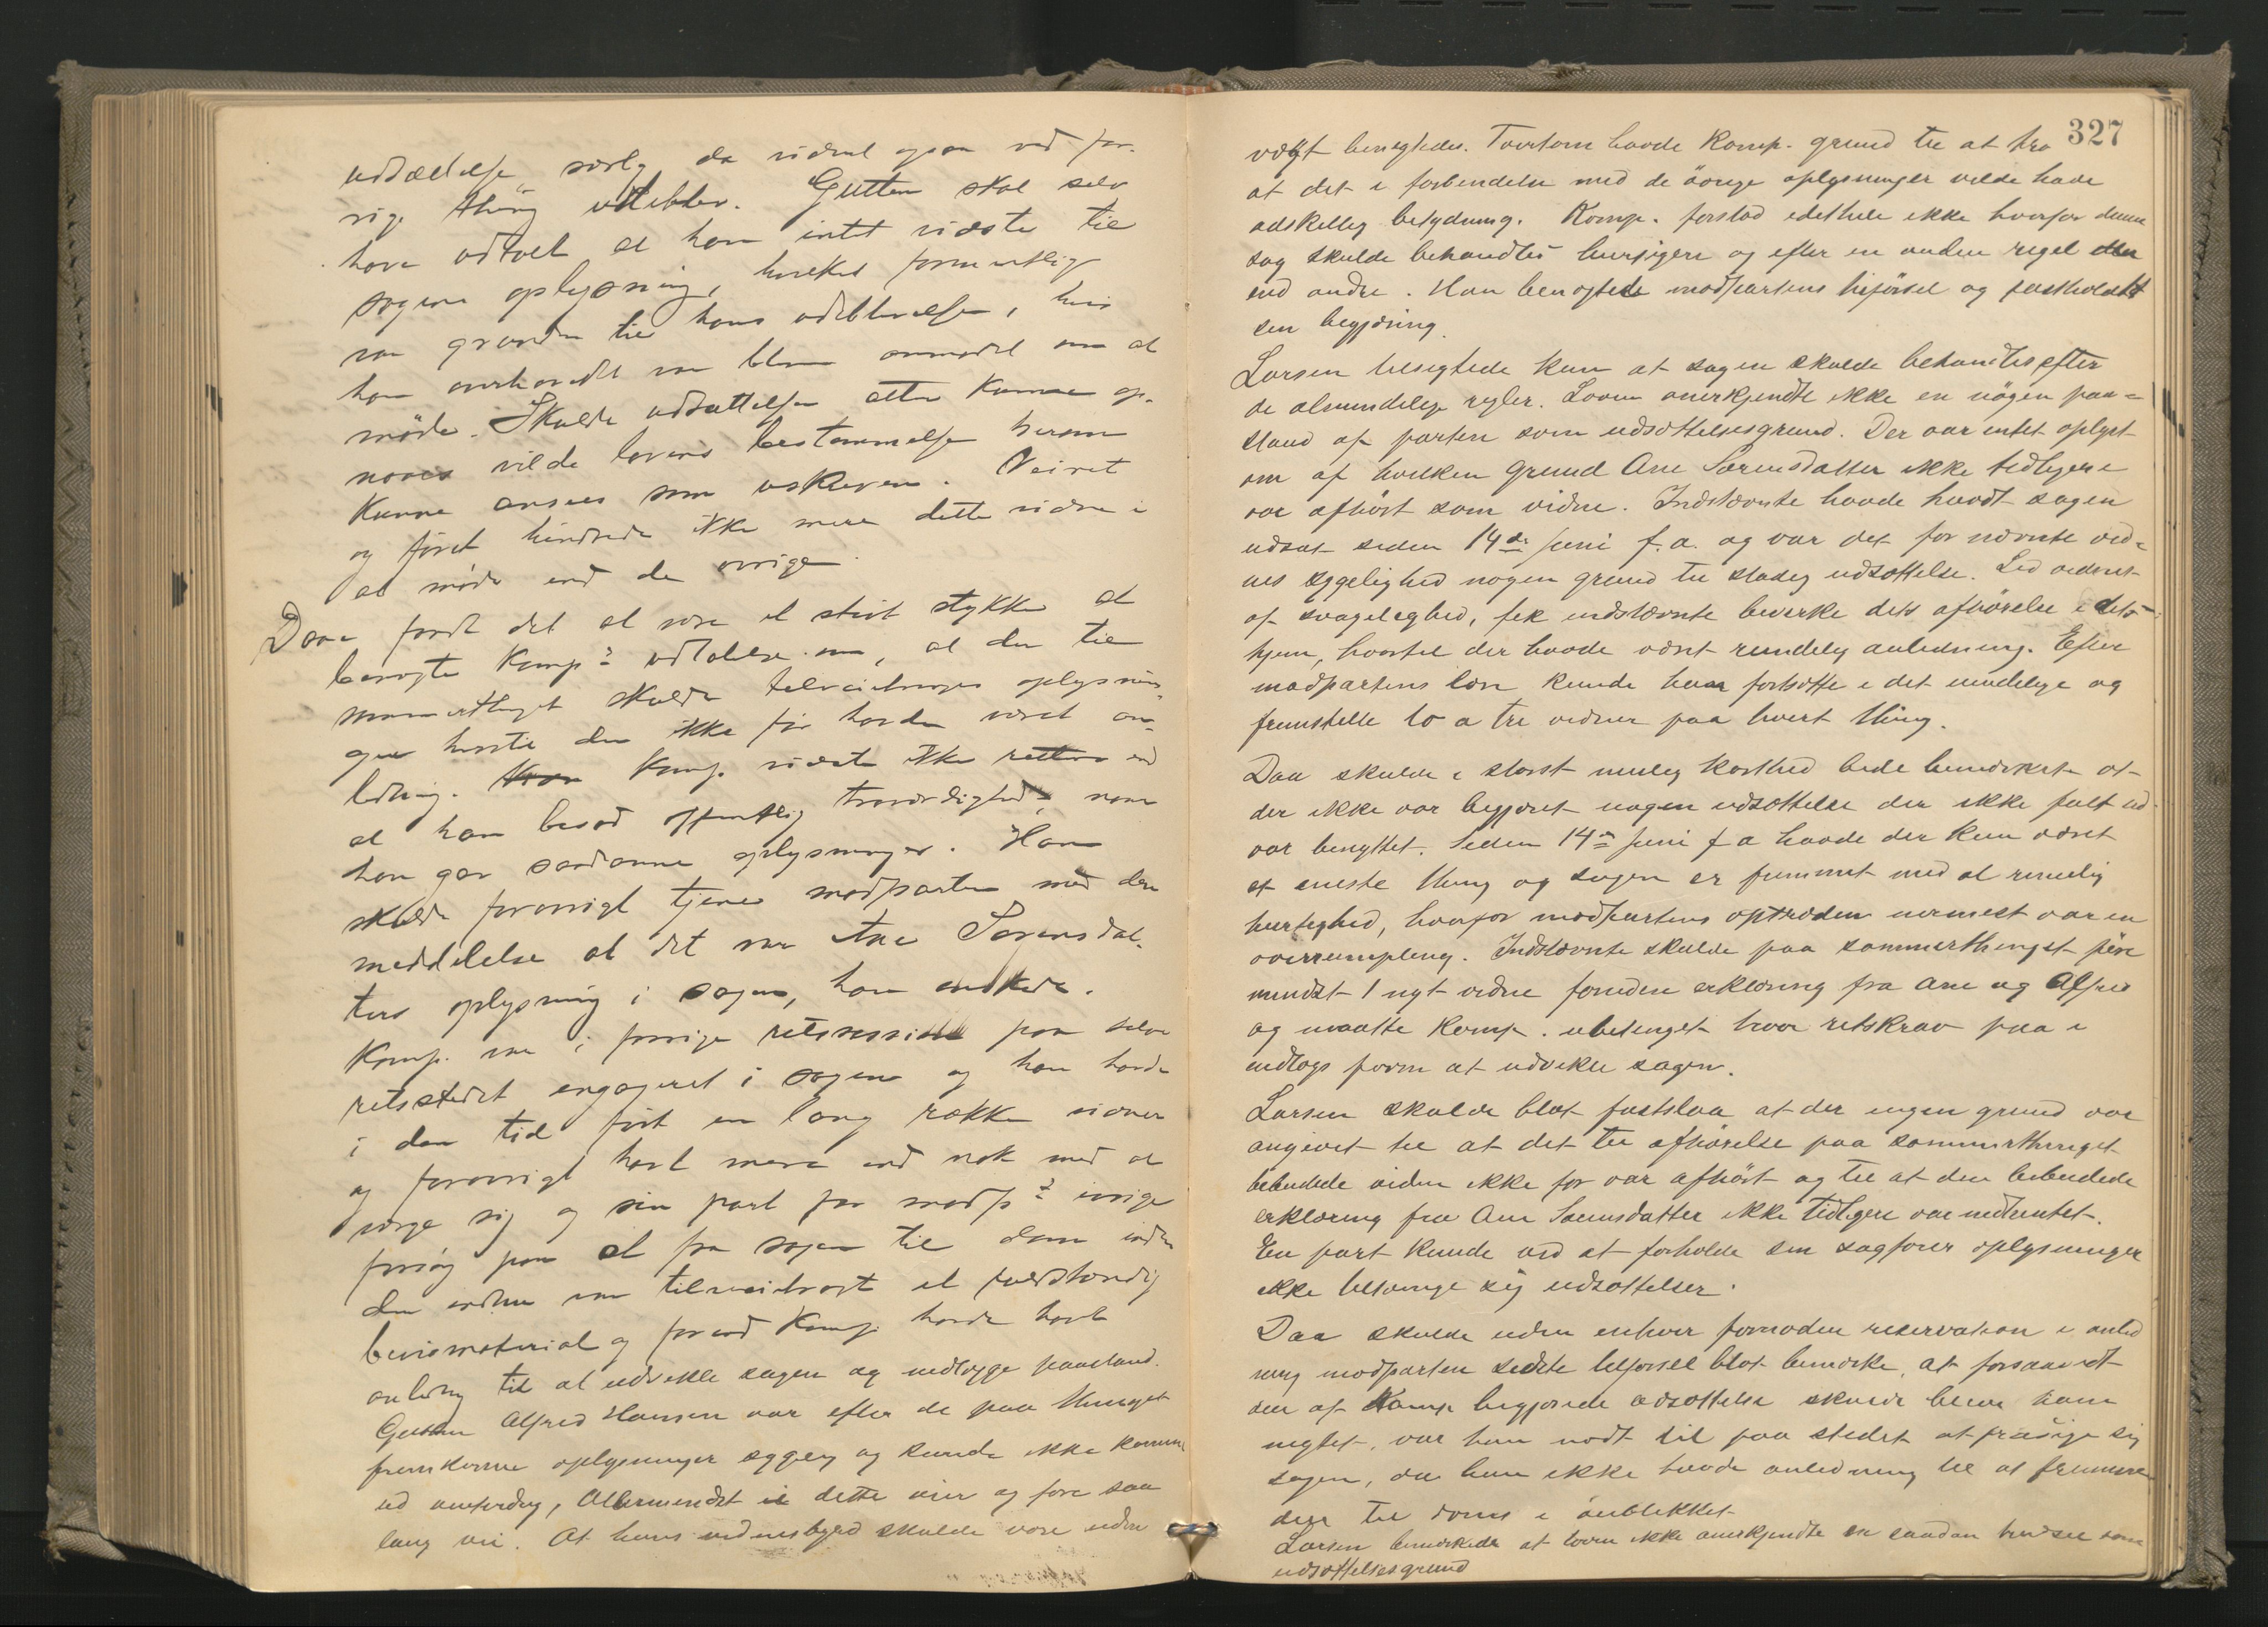 udsættelse særlig da vidnet ogsaa ved for-
rige thing udeblev. Gutten skal selv
have udtalt at han intet vidste til
sagens oplysning, hvilket formentlig
var grunden til hans udeblivelse, hvis
han overhovedet var bleven anmodet om at
møde. Skulde udsættelse atter kunne op-
naaes vilde lovens bestemmelse herom
kunne ansees som uskreven. Veiret
og føret hindrede ikke mere dette vidne i
at møde end de øvrige.
Daa fandt det at være et stivt stykke at
benegte Komps udtalelse om, at der til
sommerthinget skulde tilveiebringes oplysnin-
ger hvortil der ikke før havde været an-
ledning. Komp. vidste ikke rettere end
at han besad offentlig troværdighed, naar
han gav saadanne oplysninger. Han
skulde forøvrigt tjene modparten med den
meddelelse at det var Ane Sørensdat-
ters oplysning i sagen, han ønskede.
Komp. var i forrige retssession paa selve
retsstedet engageret i sagen og han havde
i den tid ført en lang række vidner
og forøvrigt havt mere end nok med at
værge sig og sin part for modps ivrige
forsøg paa at faa sagen til dom inden
der endnu var tilveiebragt et fuldstændig
bevismateriale og forend Komp. havde havt
anledning til at udvikle sagen og nedlægge paastand.
Gutten Alfred Hansen var efter de paa thinget
fremkomne oplysninger sygelig og kunde ikke komme
ud vinterdag, allermindst i dette veir og fare saa
lang vei. At hans vidnesbyrd skulde være uden
327
vægt benegtedes. Tvertom havde Komp. grund til at tro
at det i forbindelse med de øvrige oplysninger vilde have
adskillig betydning. Komp. forstod idethele ikke hvorfor denne
sag skulde behandles hurtigere og efter en anden regel
end andre. Han benegtede modpartens tilførsel og fastholdt
sin begjæring.
Larsen besigtede kun at sagen skulde behandles efter
de almindelige regler. Loven anerkjendte ikke en nøgen paa-
stand af parten som udsættelsesgrund. Der var intet oplyst
om af hvilken grund Ane Sørensdatter ikke tidligere
var afhørt som vidne. Indstævnte havde havt sagen
udsat siden 14de juni f.a. og var det for nævnte vid-
nes sygelighed nogen grund til stadig udsættelse. Led vidnet
af svagelighed, fik indstævnte bevirke dets afhørelse i dets
hjem, hvortil der havde været rundelig anledning. Efter
modpartens lære kunde han fortsætte i det uendelige og
fremstille to a tre vidner paa hvert thing.
Daa skulde i størst mulig korthed bede bemærket at
der ikke var begjæret nogen udsættelse der ikke fuldt ud
var benyttet. Siden 14de juni f a havde der kun været
et eneste thing og sagen er fremmet med al rimelig
hurtighed, hvorfor modpartens optræden nærmest var en
overrumpling. Indstævnte skulde paa sommerthinget føre
mindst 1 nyt vidne foruden erklæring fra Ane og Alfred
og maatte Komp. ubetinget have retskrav paa i
indlægs form at udvikle sagen.
Larsen skulde blot fastslaa at der ingen grund var
angivet til at det til afhørelse paa sommerthinget
bebudede vidne ikke før var afhørt og til at den bebudede
erklæring fra Ane Sørensdatter ikke tidligere var indhentet.
En part kunde ved at forholde sin sagfører oplysninger
ikke betvinge sig udsættelser.
Daa skulde uden enhver fornøden reservation i anled
ning modpartens sidste tilførsel blot bemærke, at forsaavidt
den af Komp begjærede udsættelse skulde blive ham
negtet, var han nødt til paa stedet at frasige sig
sagen, da han ikke havde anledning til at fremme
den til doms i øieblikket.
Larsen bemærkede at loven ikke anerkjendte en saadan trudsel som
udsættelsesgrund